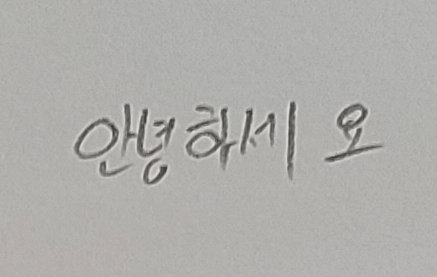 안녕하세 요